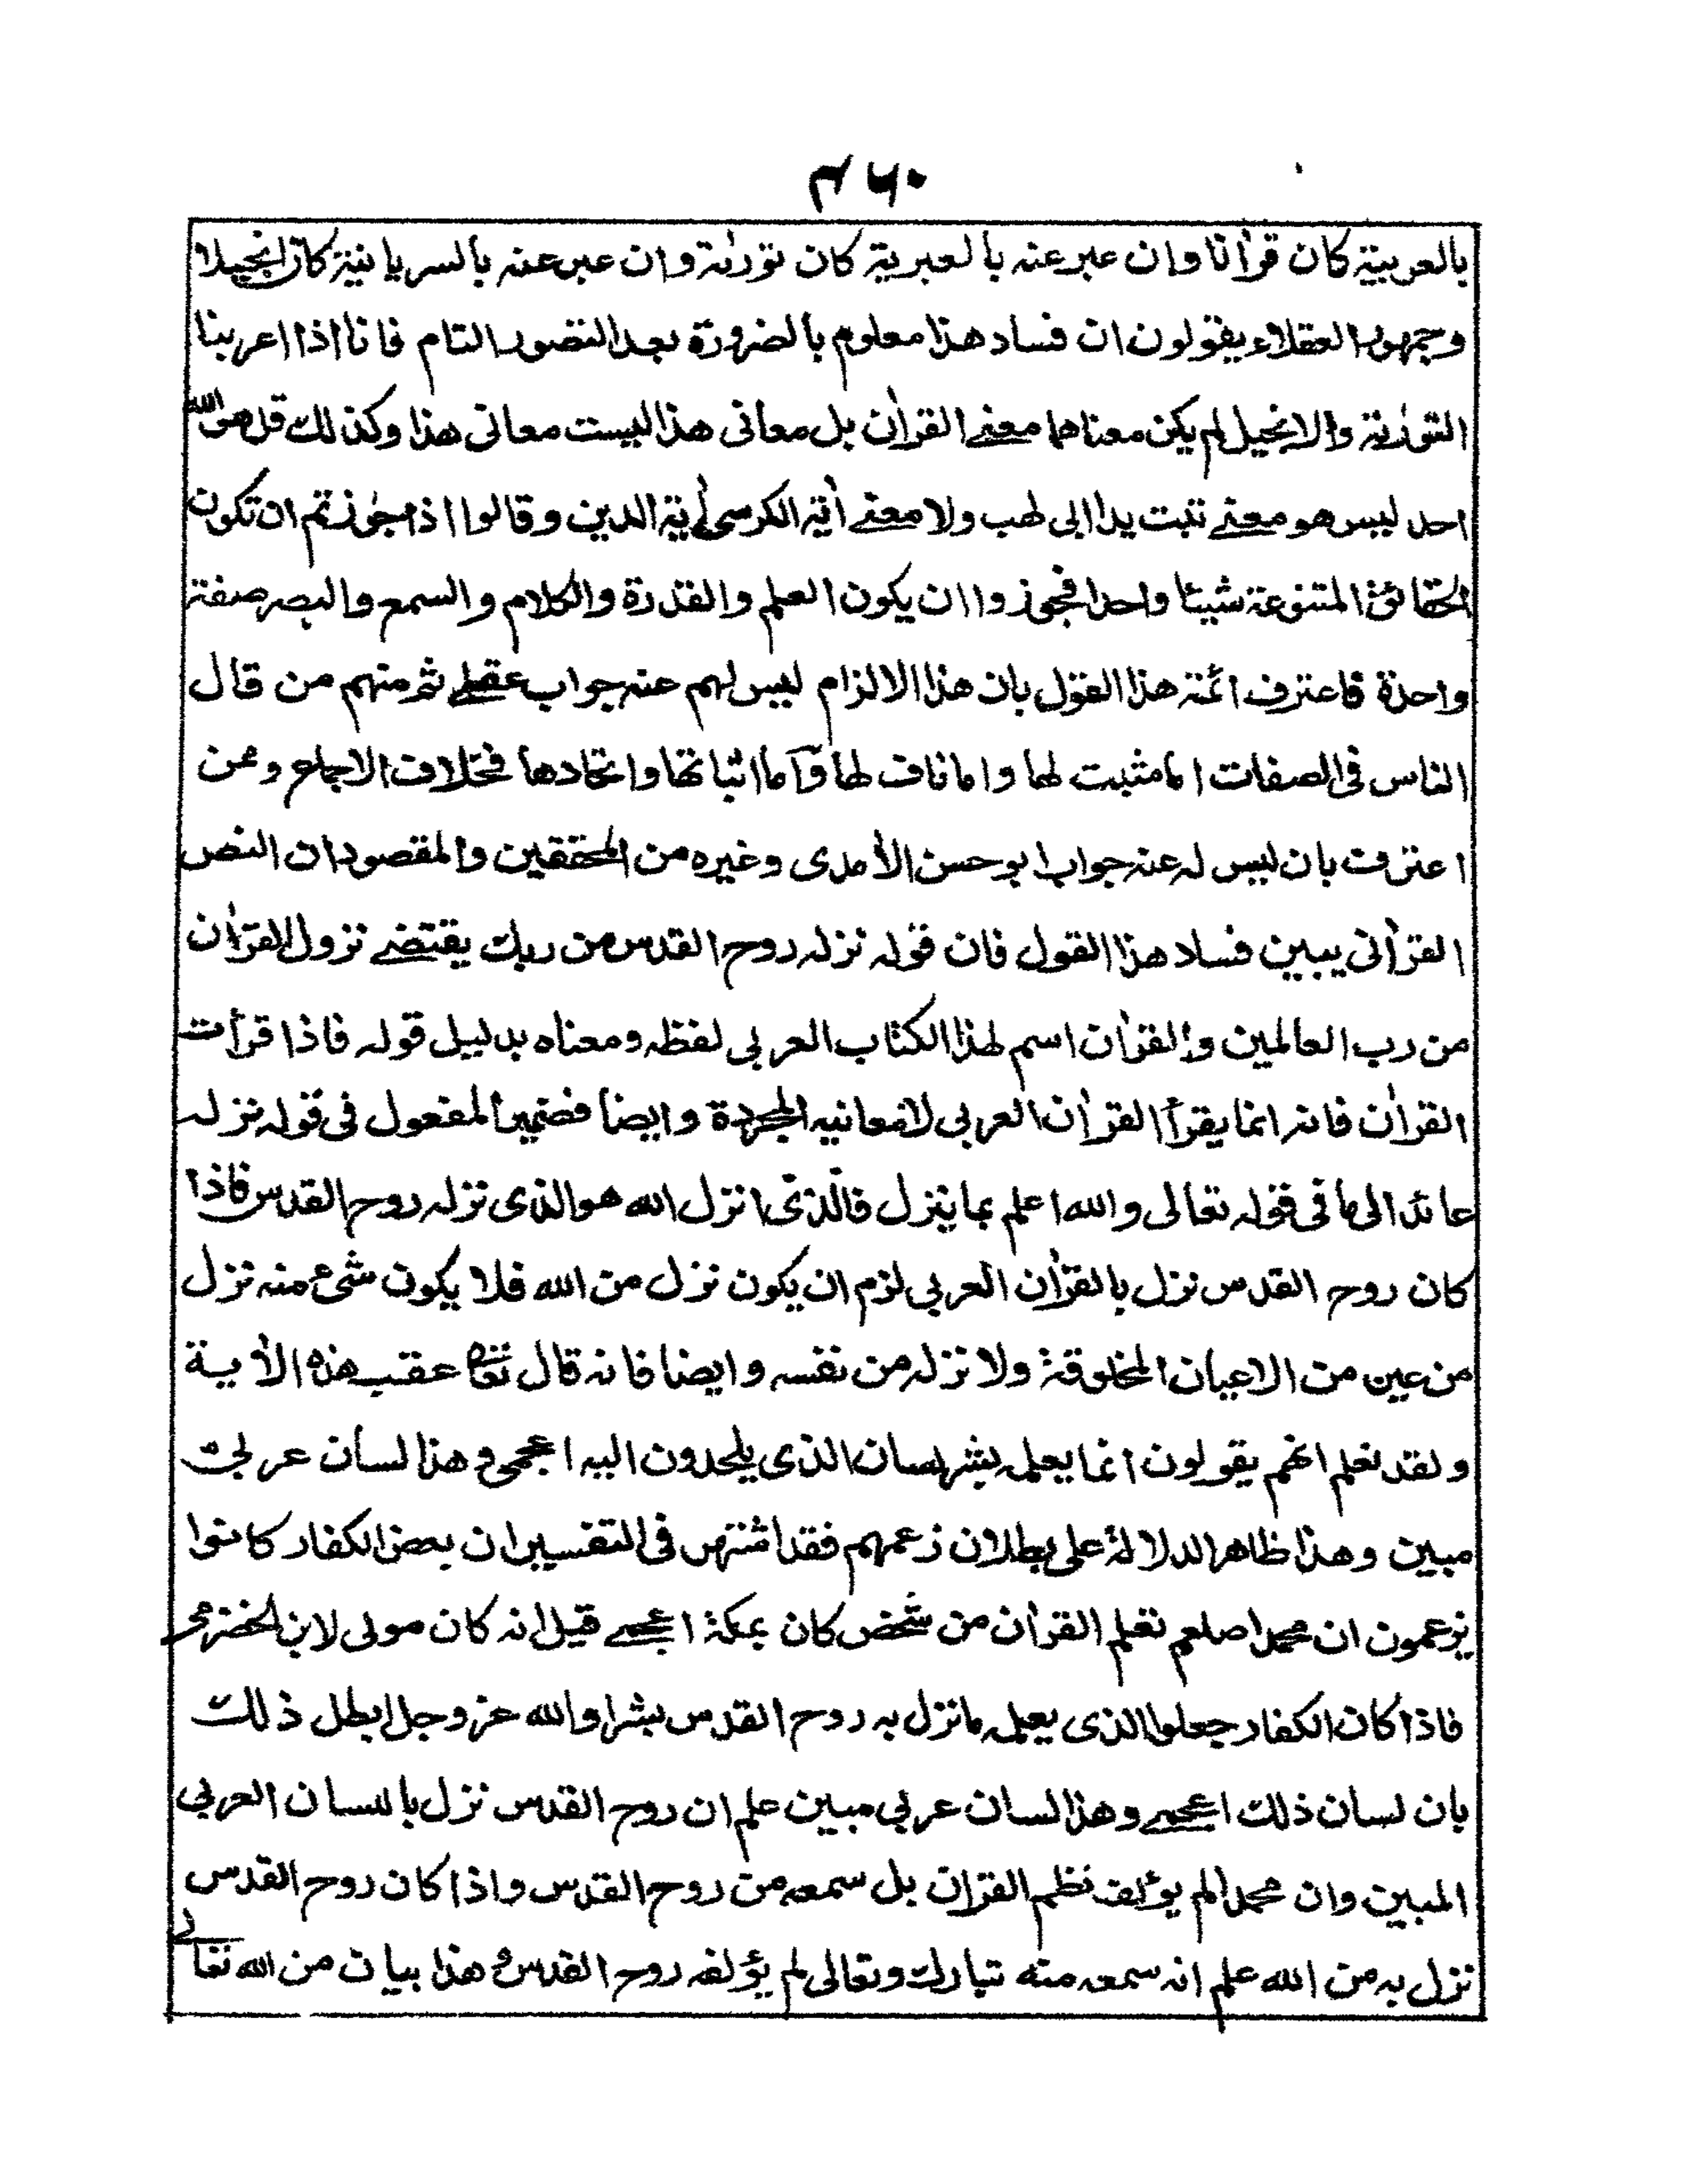 ۴۶۰
بالعربية كان قرأنا وان عبر عنه بالعبرية كان تورىة وان عبر عنه بالسريانية كان انجيلا
وجمهور العقلاء يقولون ان فساد هذا معلوم بالضرورة بعد التصور التام فانا اذا اعربنا
التورىة والانجيل لم يكن معناهما معنے القرأن بل معانى هذا ليست معانى هذا وكذلك قل هو الله
احد ليس هو معنے تبت يدا ابى لهب ولا معنے أية الكرسى أية الدين وقالوا اذا جوزتم ان تكون
الحقائق المتنوعة شيئا واحدا فجوزوا ان يكون العلم والقدرة والكلام والسمع والبصر صفة
واحدة فاعترف ائمة هذا القول بان هذا الالزام ليس لهم عنه جواب عقلے ثم منهم من قال
الناس فى الصفات اما مثبت لها واما ناف لها وأما اثباتها واتحادها فخلاف الاجماع وممن
اعترف بان ليس له عنه جواب ابو حسن الأمدى وغيره من المحققين والمقصود ان النص
القرأنى يبين فساد هذا القول فان قوله نزله روح القدس من ربك يقتضے نزول القرأن
من رب العالمين والقرأن اسم لهذا الكتاب العربى لفظه ومعناه بدليل قوله فاذا قرأت
القرأن فانه انما يقرأ القرأن العربى لا معانيه المجردة وايضا فضمير المفعول فى قوله نزله
عائد الى ما فى قوله تعالى والله اعلم بما ينزل فالذى انزل الله هو الذى نزله روح القدس فاذا
كان روح القدس نزل بالقرأن العربى لزم ان يكون نزل من الله فلا يكون شئ منه نزل
من عين من الاعيان المخلوقة ولا نزله من نفسه وايضا فانه قال تعا عقب هذه الأية
ولقد نعلم انهم يقولون انما يعلمه بشر لسان الذى يلحدون اليه اعجمى وهذا لسان عربى
مبين وهذا ظاهر الدلالة على بطلان زعمهم فقد اشتهر فى التفسير ان بعض الكفار كانوا
يزعمون ان محمدا صلعم تعلم القرأن من شخص كان بمكة اعجمے قيل انه كان مولى لابن الحضرمى
فاذا كان الكفار جعلوا الذى يعلمه ما نزل به روح القدس بشرا والله عز وجل ابطل ذلك
بان لسان ذلك اعجمے وهذا لسان عربى مبين علم ان روح القدس نزل باللسان العربى
المبين وان محمدا لم يؤلف نظم القرأن بل سمعه من روح القدس واذا كان روح القدس
نزل به من الله علم انه سمعه منه تبارك وتعالى لم يؤلفه روح القدس وهذا بيان من الله تعالے